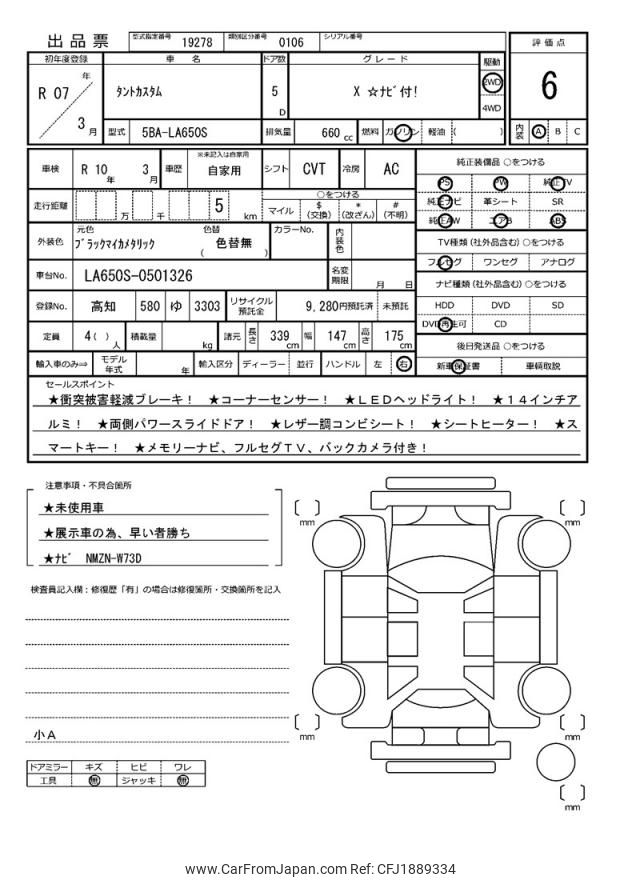 出品票 型式指定番号 19278 類別区分番号 0106 シリアル番号
初年度登録 車 名 ドア数 グレード 駆動 評価点
R 07 年 3 月 タントカスタム 5 D X ☆ナビ付! 2WD 4WD 6
型式 5BA-LA650S 排気量 660 cc 燃料 ガソリン 軽油 ( ) 内装 A B C
車検 R 10 年 3 月 車歴 ※未記入は自家用 自家用 シフト CVT 冷房 AC
純正装備品 ○をつける
PS PW 純正TV
純正ナビ 革シート SR
純正AW エアB ABS
走行距離 万 千 5 km ○をつける
マイル $(交換) *(改ざん) #(不明)
外装色 元色 ブラックマイカメタリック 色替 ( 色替無 ) カラーNo. 内装色
TV種類 (社外品含む) ○をつける
フルセグ ワンセグ アナログ
車台No. LA650S-0501326 名変期限 月 日
ナビ種類 (社外品含む) ○をつける
HDD DVD SD
DVD再生可 CD
登録No. 高知 580 ゆ 3303 リサイクル預託金 9,280円預託済 未預託
定員 4 ( ) 人 積載量 kg 諸元 長さ 339 cm 幅 147 cm 高さ 175 cm
後日発送品 ○をつける
新車保証書 車輌取説
輸入車のみ⇒ モデル年式 年 輸入区分 ディーラー 並行 ハンドル 左 右
セールスポイント
★衝突被害軽減ブレーキ! ★コーナーセンサー! ★LEDヘッドライト! ★14インチア
ルミ! ★両側パワースライドドア! ★レザー調コンビシート! ★シートヒーター! ★ス
マートキー! ★メモリーナビ、フルセグTV、バックカメラ付き!
注意事項・不具合箇所
★未使用車
★展示車の為、早い者勝ち
★ナビ NMZN-W73D
検査員記入欄:修復歴「有」の場合は修復箇所・交換箇所を記入
小A
ドアミラー キズ ヒビ ワレ
工具 無 ジャッキ 無
mm
mm
mm
mm
mm
www.CarFromJapan.com Ref: CFJ1889334